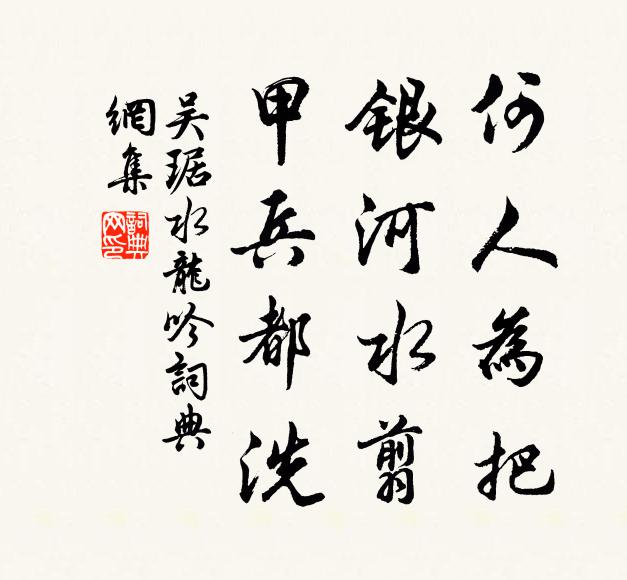 何人為把
銀河水剪
甲兵都洗
吴琚水龍吟詞典
網集
詞典
网印